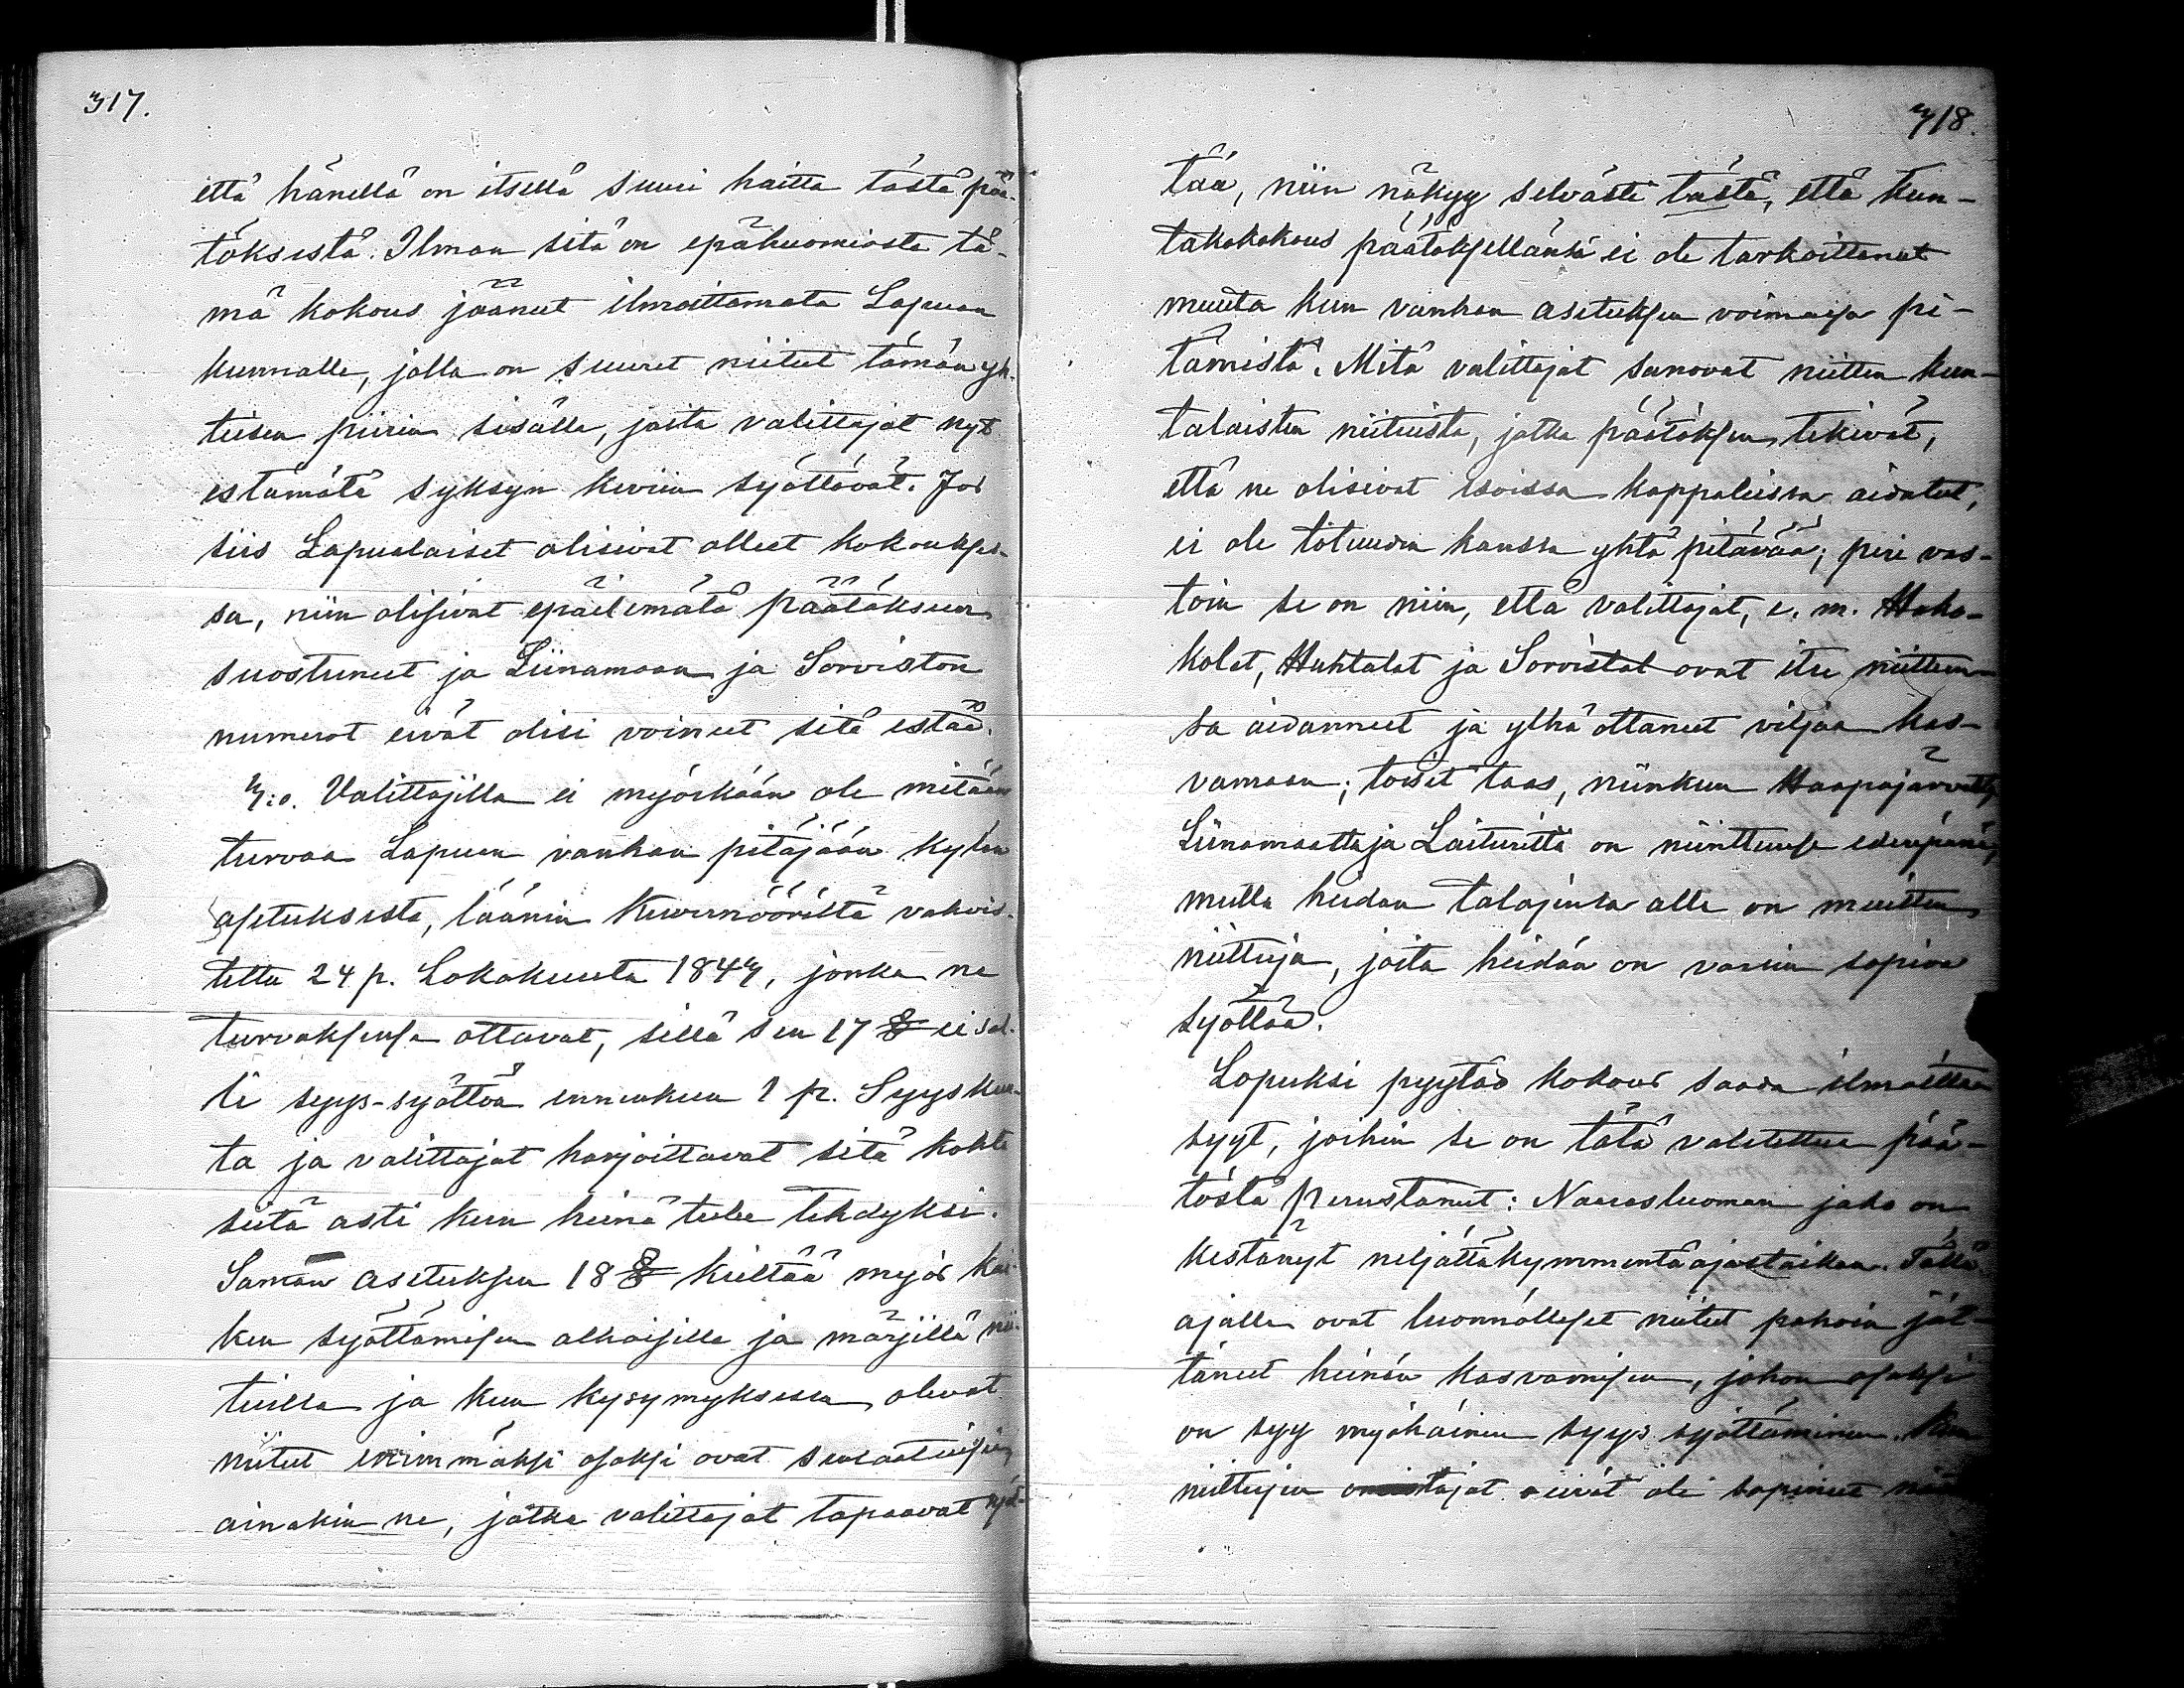 317.
että hänellä on itsellä suuri haitta tästä pää-
töksestä. Ilman sitä on epähuomiosta tä-
mä kokous jäänyt ilmoittamata Lapuan
kunnalle, jolla on suuret niitut tämän yh-
teisen piirin sisälle, joita valittajat nyt
estämätä syksyn keviin syöttävät. Jos
siis Lapualaiset olisivat olleet kokoukses-
sa, niin olisivat epäilemätä päätökseen
suostuneet ja Liinamaan ja Sorviston
numerot eivät olisi voineet sitä estää.
3:o. Valittajilla ei myöskään ole mitään
turvaa Lapuan vanhan pitäjään kylän
asetuksesta, läänin Kuvernööriltä vahvis-
tettu 24 p. Lokakuuta 1843, jonka ne
turvaksensa ottavat, sillä sen 17 § ei sal-
li syys-syöttöä ennenkuin 1 p. Syyskuu-
ta ja valittajat harjoittavat sitä kohta
siitä asti kun heinä tulee tehdyksi.
Saman asetuksen 18 § kieltää myös kai-
ken syöttämisen alhaisilla ja märjillä nii-
tuilla ja kun kysymyksessa olevat
niitut enimmäksi osaksi ovat sensaatuisia
ainakin ne, jotka valittajat tapaavat syöt-
318.
tää, niin näkyy selvästi tästä, että kun-
takokous päätöksellänsä ei ole tarkoittanut
muuta kun vanhan asetuksen voimassa pi-
tämistä. Mitä valittajat sanovat niitten kun-
talaisten niituista, jotka päätöksen tekivät,
että ne olisivat isoissa kappaleissa aidatut,
ei ole totuuden kanssa yhtä pitävää; piri vas-
toin se on niin, että valittajat, e. m. Hako-
kolat, Huhtalat ja Sorvistot ovat itse niittun-
sa aidanneet ja ylhä ottaneet viljaa kas-
vamaan; toiset taas, niinkuin Haapajärvellä,
Liinamaalla ja Laiturilla on niinttunsa edempänä,
mutta heidän talojensa alla on muitten
niittuja, joita heidän on varsin sopiva
syöttää.
Lopuksi pyytää kokous saada ilmoittaa
syyt, joihin se on tätä valitettua pää-
töstä perustanut: Naarasluoman jako on
kestänyt neljättäkymmentä ajastaikaa. Tällä
ajalla ovat luonnolliset niitut pahoin jät-
täneet heinän kasvamisen, johon osaksi
on syy myöhäinen syys syöttäminen. Kun
niittujen omistajat eivät ole sopineet